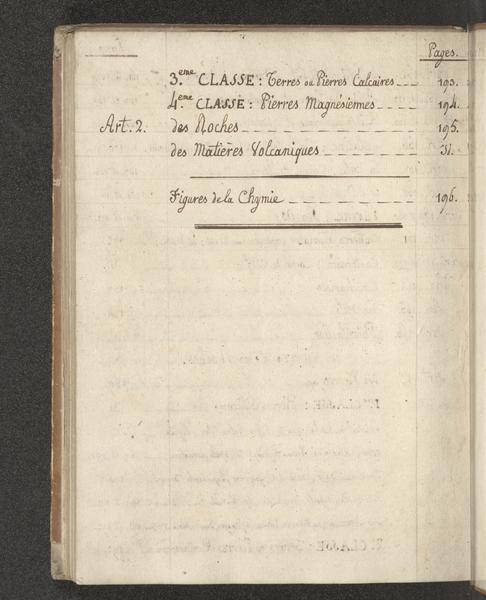 Pages.
3.eme CLASSE: Terres ou Pierres Calcaires 193.
4.eme CLASSE: Pierres Magnésiennes 194.
Art. 2. des Roches 195.
des Matières Volcaniques
Figures de la Chymie 196.